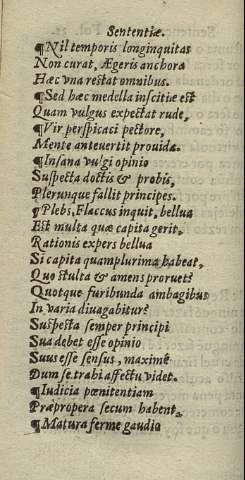 Sententiæ.
¶Nil temporis longinquitas
Non curat, Ægeris anchora
Hæc vna restat omnibus.
¶Sed hæc medella inscitiæ est
Quam vulgus expectat rude,
¶Vir perspicaci pectore,
Mente anteuertit prouida.
¶Insana vulgi opinio
Suspecta doctis & probis,
Plerunque fallit principes.
¶Plebs, Flaccus inquit, bellua
Est multa quæ capita gerit,
Rationis expers bellua
Si capita quamplurima habeat,
Quo stulta & amens proruet?
Quotque furibunda ambagibus
In varia diuagabitur?
Suspecta semper principi
Sua debet esse opinio
Suus esse sensus, maximè
Dum se trahi affectu videt.
¶Iudicia pœnitentiam
Præpropera secum habent,
¶Matura ferme gaudia